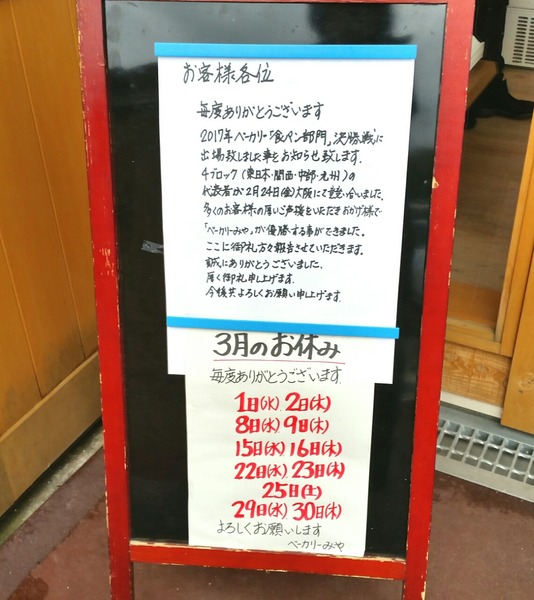 お客様各位
毎度ありがとうございます
2017年ベーカリー「食パン部門」決勝戦に
出場致しました事をお知らせ致します。
4ブロック(東日本・関西・中部・九州)の
代表者が2月24日(金)大阪にて競い合いました。
多くのお客様の厚いご声援をいただきおかげ様で
「ベーカリーみや」が優勝する事ができました。
ここに御礼方々報告させていただきます。
誠にありがとうございました。
厚く御礼申し上げます。
今後共よろしくお願い申し上げます。
3月のお休み
毎度ありがとうございます。
1日(水) 2日(木)
8日(水) 9日(木)
15日(水) 16日(木)
22日(水) 23日(木)
25日(土)
29日(水) 30日(木)
よろしくお願いします
ベーカリーみや